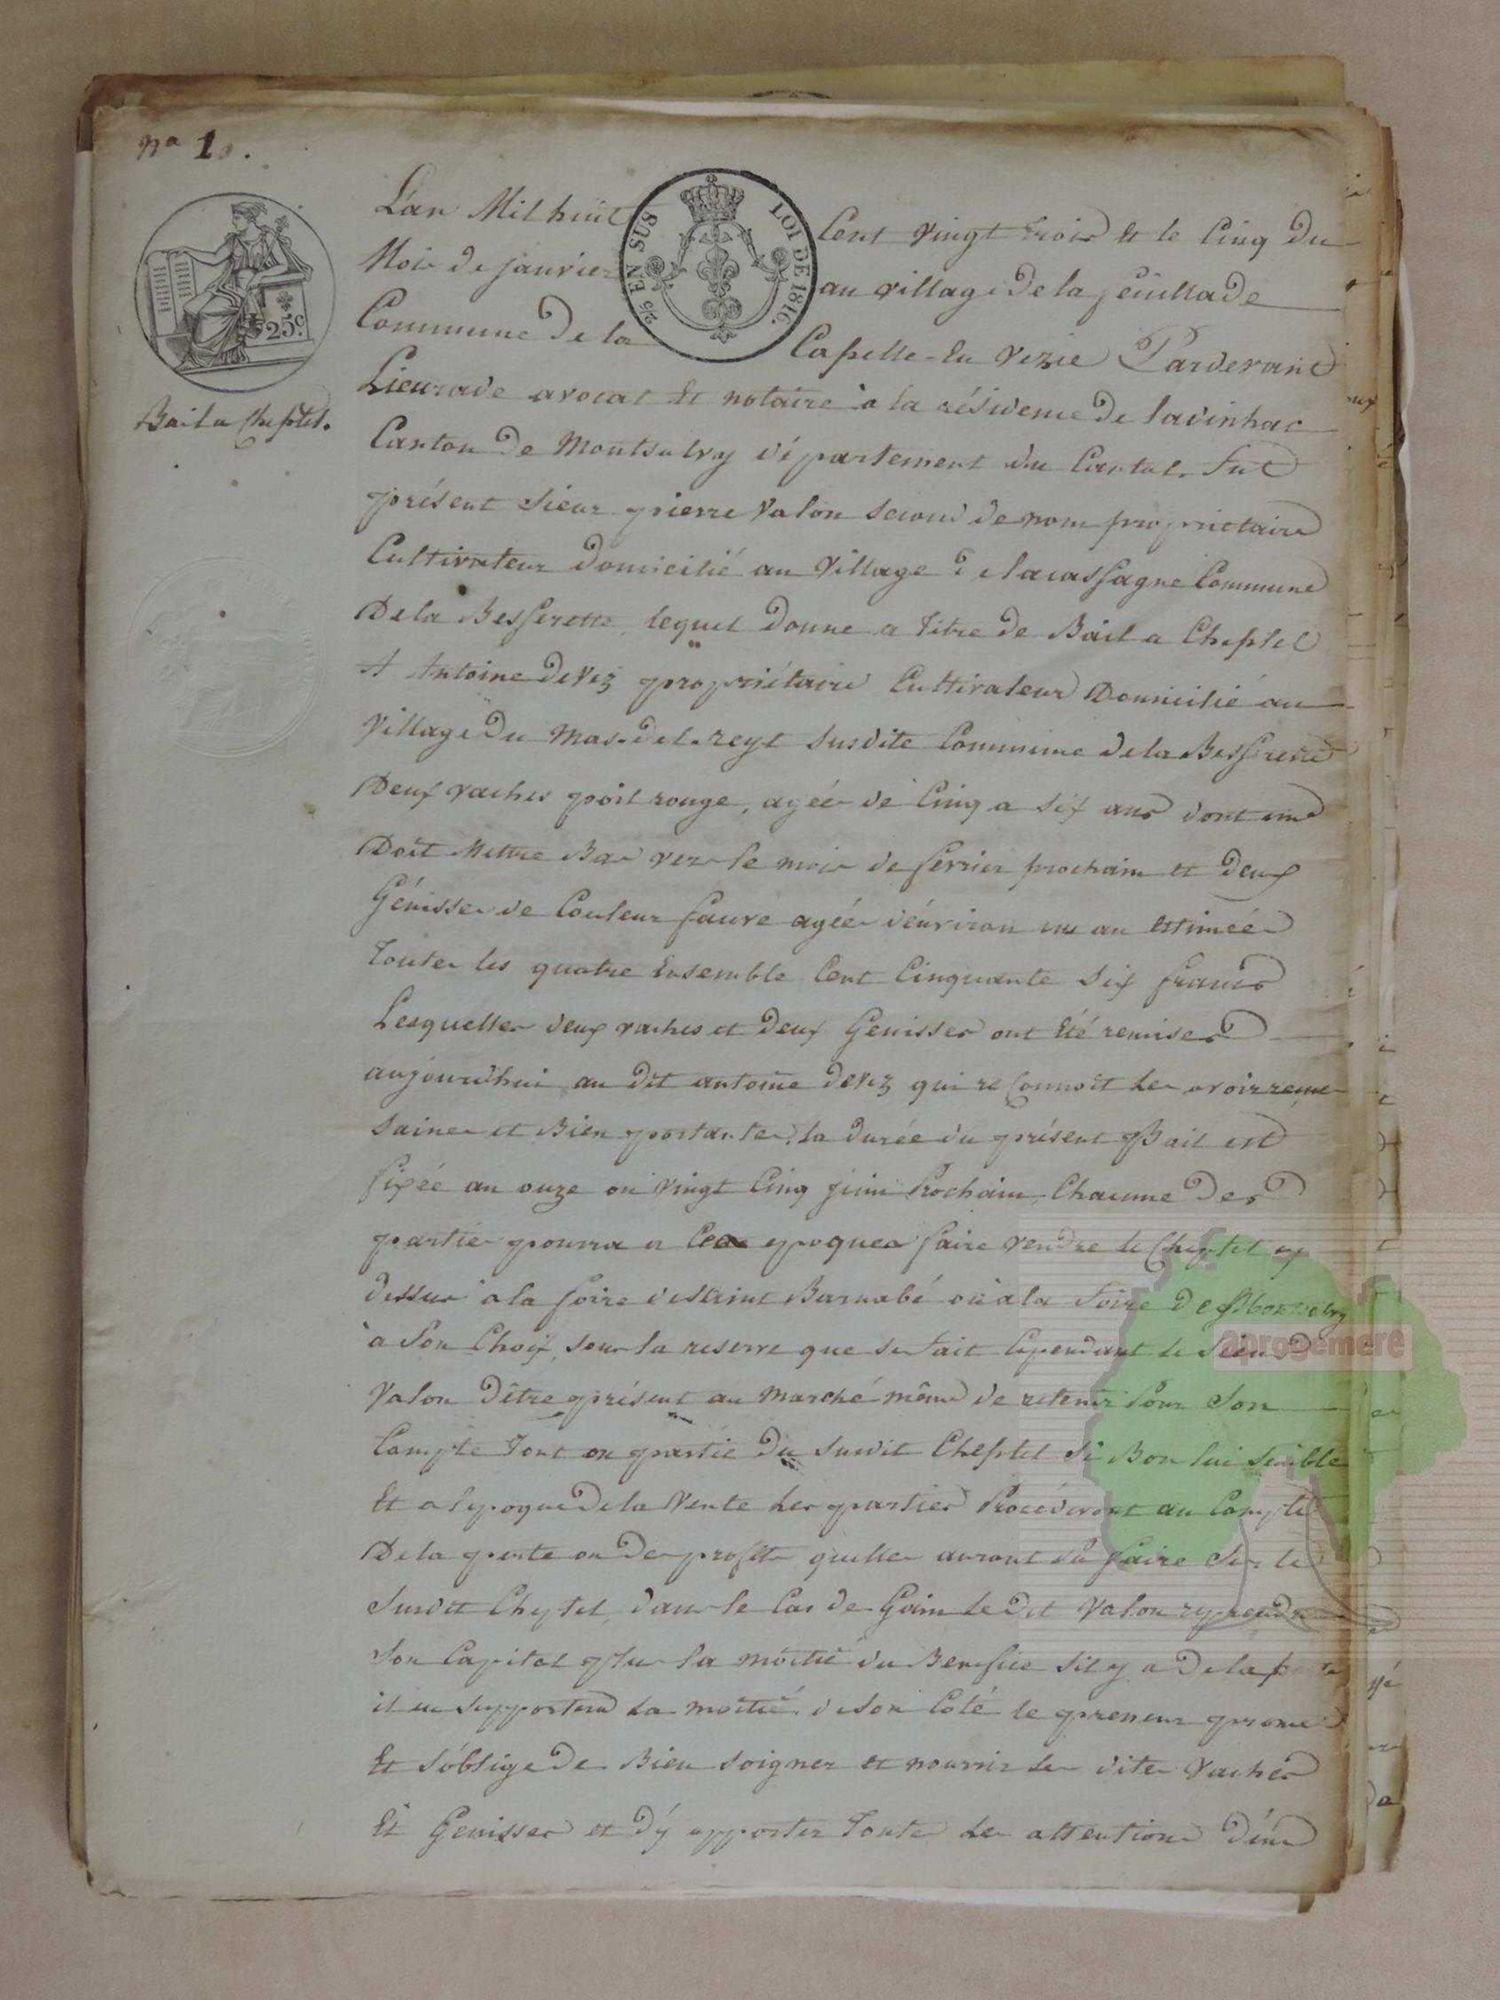 No 1.
25c
25 EN SUS
LOI DE 1816.
Bail a Cheptel.
L'an Mil huit Cent vingt trois et le Cinq Du
Mois de janvier au village De la feuillade
Commune De la Capelle-En Vezie Pardevant
Lieurade avocat Et notaire à la résidence De lavinhac
Canton De Montsalvy département du Cantal. fut
présent Sieur pierre Valon second de nom propriétaire
Cultivateur Domicilié au Village de lacassagne Commune
De la Besserette, lequel Donne a Titre De Bail a Cheptel
A Antoine Devez propriétaire Cultivateur Domicilié au
Village Du Mas-del-reyt susdite Commune de la Besserette
Deux vaches poil rouge, agées de Cinq a six ans dont une
Doit Mettre Bas vers le mois de fevrier prochain et deux
Génisses de Couleur fauve agées d'énviron un an Estimées
Toutes les quatre Ensemble Cent Cinquante Six francs
Lesquelles deux vaches et deux Genisses ont Eté remises
aujourd'hui au Dit antoine Devez qui reConnoit Les avoir reçues
Saines et Bien portantes, la durée du présent Bail est
fixée au onze ou vingt Cinq juin Prochain, Chacune Des
parties pourra a Ces epoques faire vendre le Cheptel cy
dessus à la foire de Saint Barnabé ou à la foire De Montsalvy
à Son Choix, sous la reserve que se fait Cependant le Sieur
Valon D'être présent au Marché même de retenir Pour Son
Compte Tout ou partie Du susdit Cheptel Si Bon lui semble
Et a l'epoque De la Vente Les parties Procéderont au Compte
De la perte ou Des profits quelles auront pû faire Sur le
Susdit Cheptel, dans le Cas de Gain Le Dit Valon reprendra
Son Capital plus la moitié du Benefice s'il y a De la perte
il en supportera La moitié. de son Coté le preneur promet
Et s'oblige De Bien Soigner et nourrir Les dites Vaches
Et Genisses et D'y apporter Toutes Les attentions D'un
aprogemere